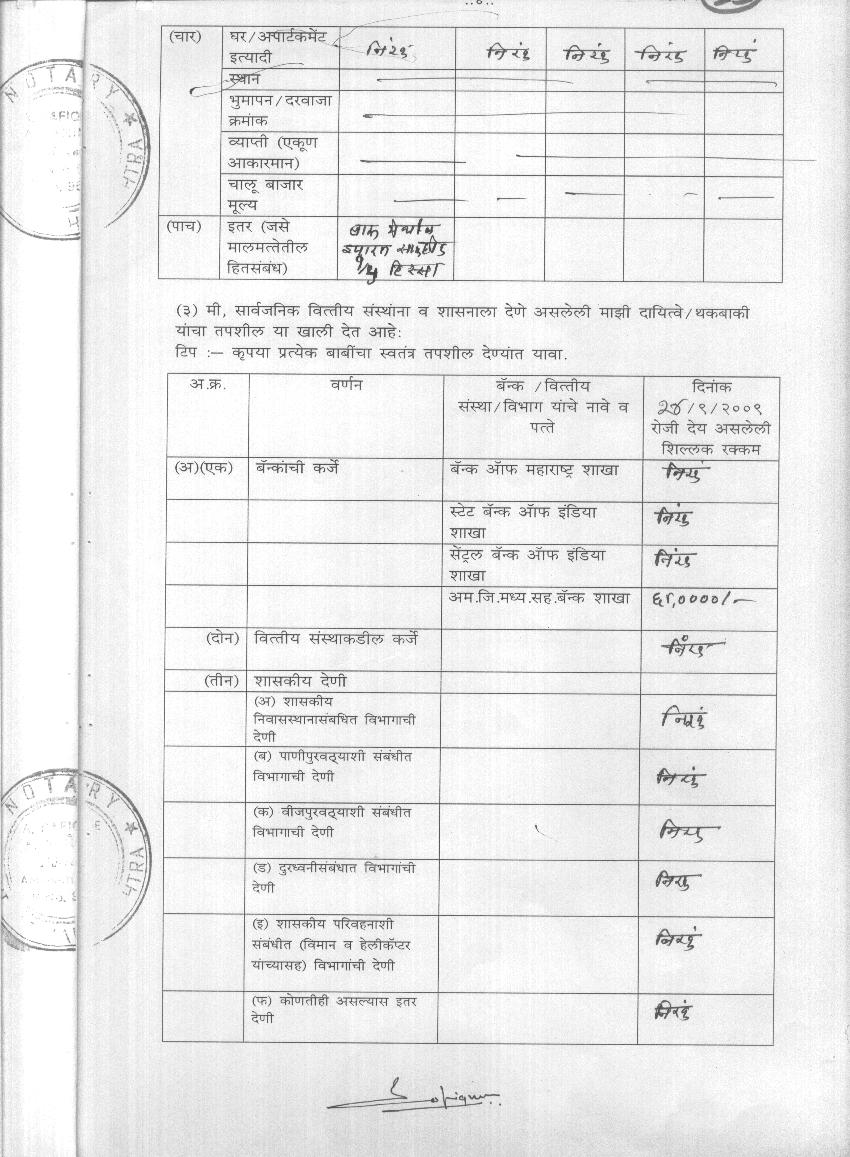 (चार) घर/अपार्टकमेंट निरंक निरंक निरंक निरंक निरंक
इत्यादी
स्थान
भुमापन/दरवाजा
क्रमांक
व्याप्ती (एकूण
आकारमान)
चालू बाजार
मूल्य
(पाच) इतर (जसे
मालमत्तेतील
हितसंबंध) हिस्सा
(३) मी, सार्वजनिक वित्तीय संस्थांना व शासनाला देणे असलेली माझी दायित्वे/थकबाकी
यांचा तपशील या खाली देत आहे:
टिप :— कृपया प्रत्येक बाबींचा स्वतंत्र तपशील देण्यांत यावा.
अ.क्र. वर्णन बॅन्क /वित्तीय दिनांक
संस्था/विभाग यांचे नावे व /९/२००९
पत्ते रोजी देय असलेली
शिल्लक रक्कम
(अ)(एक) बॅन्कांची कर्जे बॅन्क ऑफ महाराष्ट्र शाखा निरंक
स्टेट बॅन्क ऑफ इंडिया निरंक
शाखा
सेंट्रल बॅन्क ऑफ इंडिया निरंक
शाखा
अम.जि.मध्य.सह.बॅन्क शाखा
(दोन) वित्तीय संस्थाकडील कर्जे निरंक
(तीन) शासकीय देणी
(अ) शासकीय
निवासस्थानासंबधित विभागाची निरंक
देणी
(ब) पाणीपुरवठ्याशी संबंधीत
विभागाची देणी निरंक
(क) वीजपुरवठ्याशी संबंधीत
विभागाची देणी निरंक
(ड) दुरध्वनीसंबंधात विभागांची निरंक
देणी
(इ) शासकीय परिवहनाशी
संबंधीत (विमान व हेलीकॅप्टर निरंक
यांच्यासह) विभागांची देणी
(फ) कोणतीही असल्यास इतर निरंक
देणी
NOTARY
NOTARY